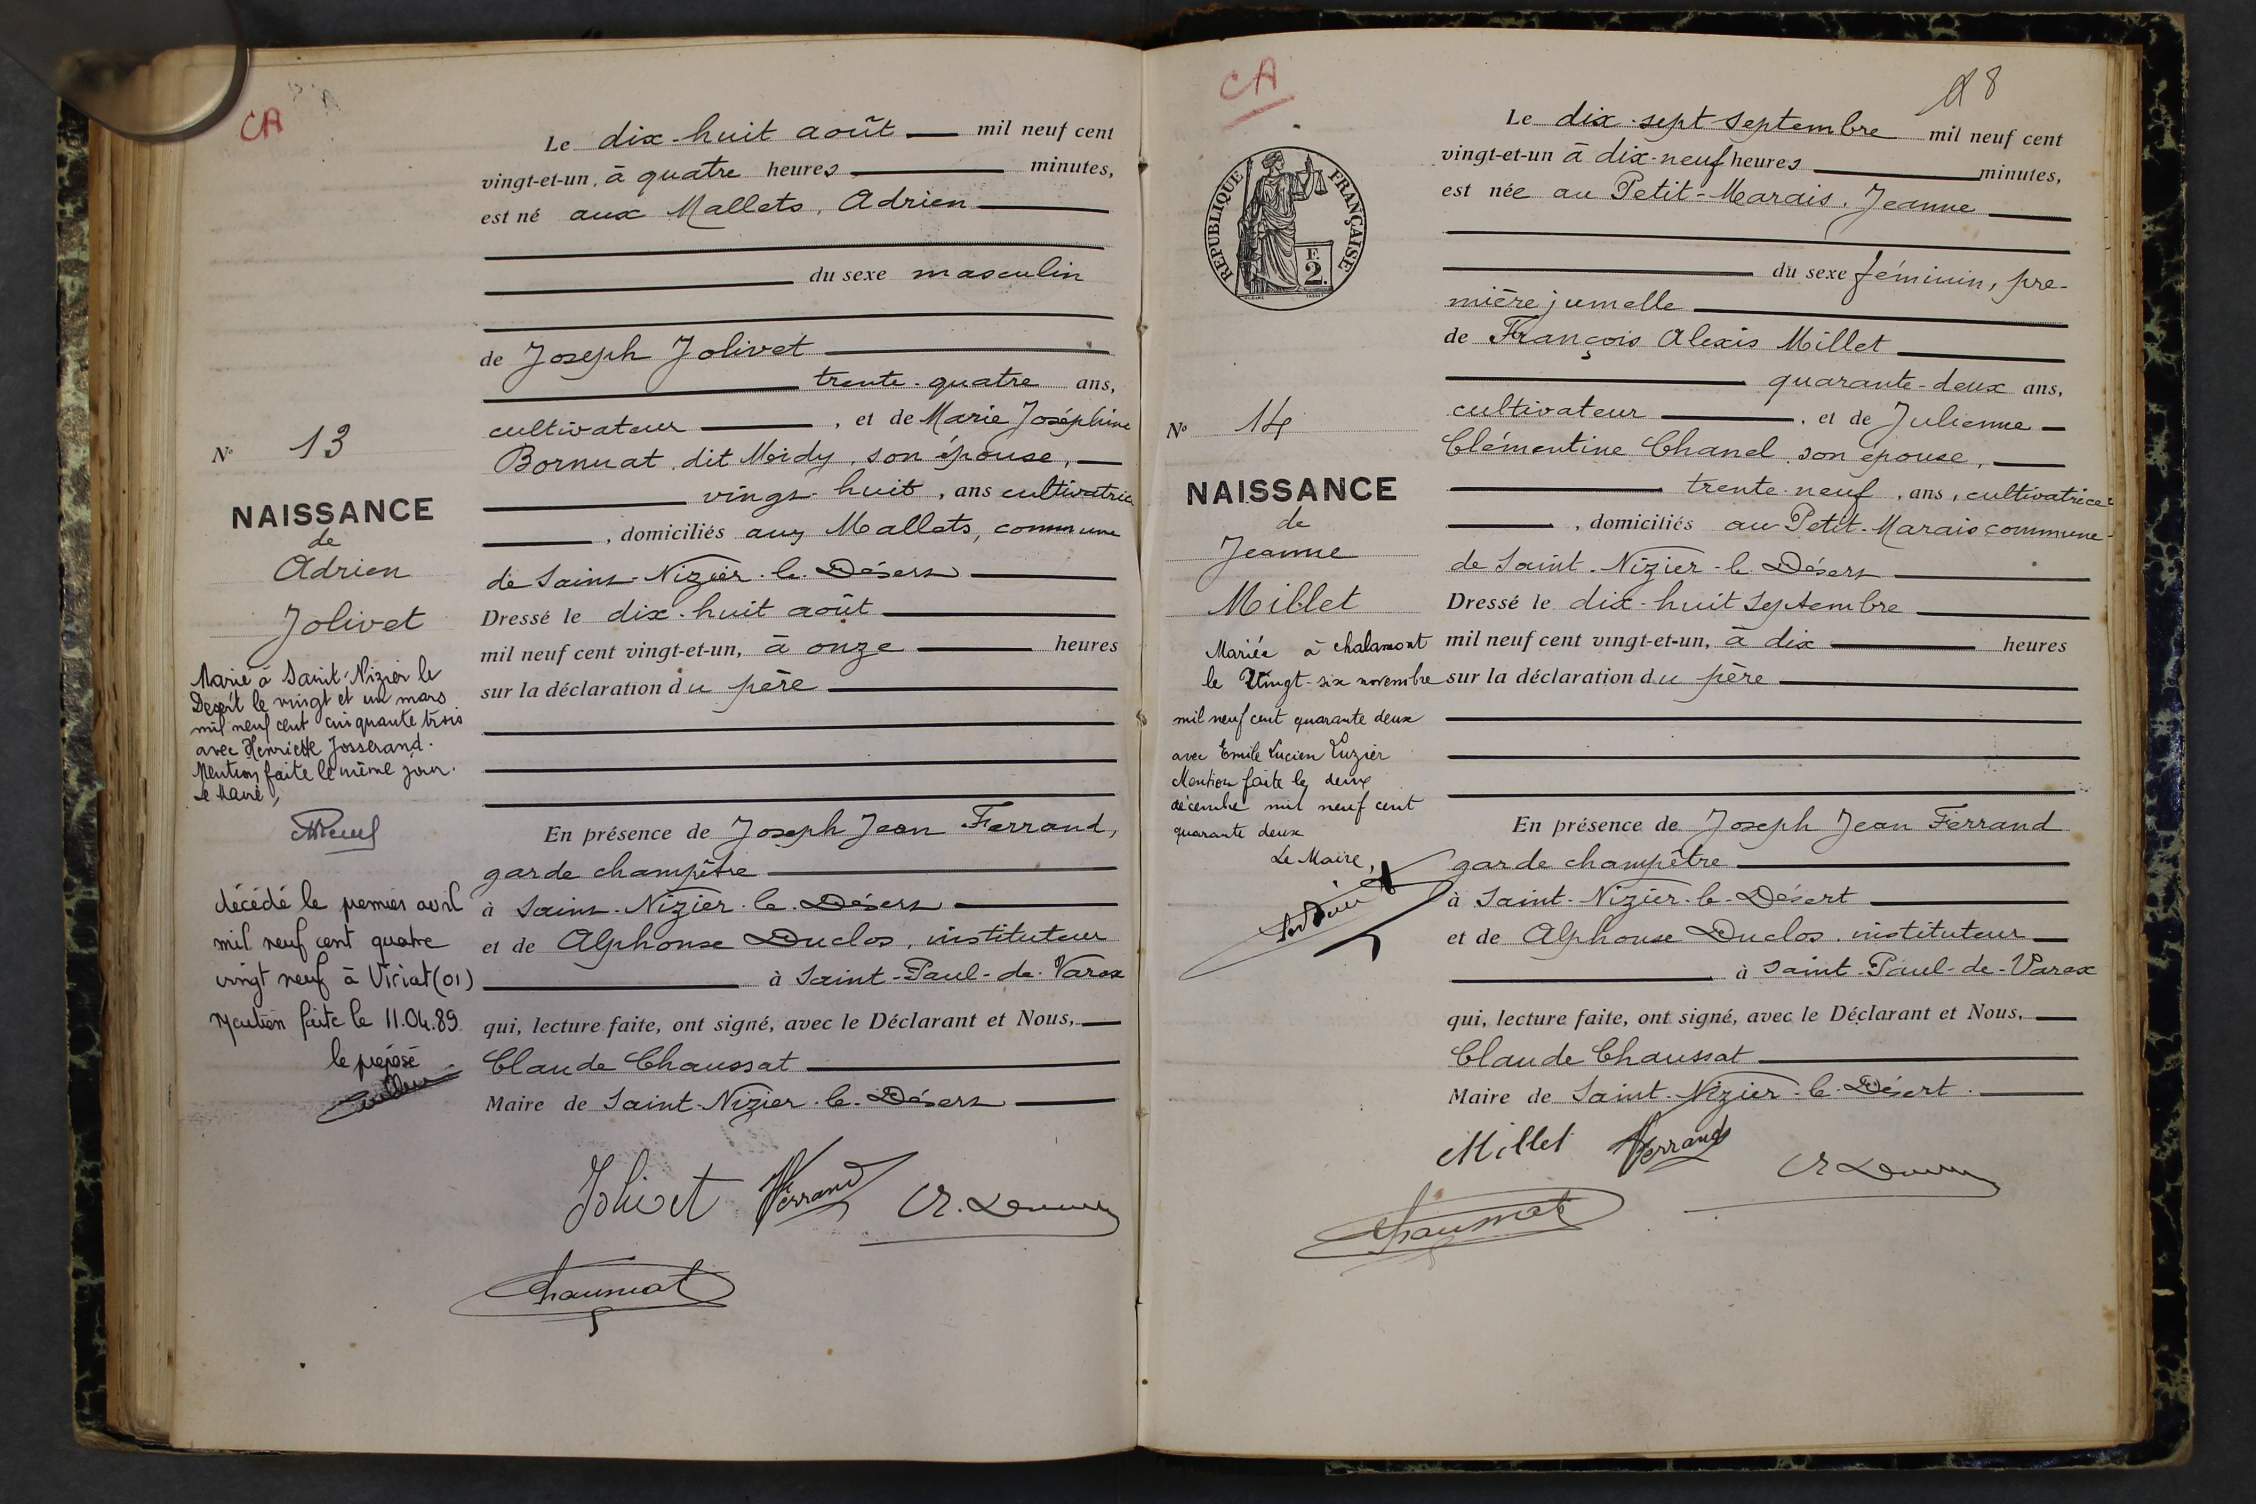 CA
Le dix-huit août mil neuf cent
vingt-et-un, à quatre heures minutes,
est né aux Mallets, Adrien
du sexe masculin
de Joseph Jolivet
trente-quatre ans,
cultivateur , et de Marie Joséphine
Bornuat dit Midy, son épouse,
vingt-huit , ans cultivatrice
, domiciliés aux Mallets, commune
de Saint-Nizier-le-Désert
Dressé le dix-huit août
mil neuf cent vingt-et-un, à onze heures
sur la déclaration du père
En présence de Joseph Jean Ferrand,
garde champêtre
à Saint-Nizier-le-Désert
et de Alphonse Duclos, instituteur
à Saint-Paul-de-Varax
qui, lecture faite, ont signé, avec le Déclarant et Nous,
Claude Chaussat
Maire de Saint-Nizier-le-Désert
Jolivet Ferrand
Chaussat
No 13
NAISSANCE
de
Adrien
Jolivet
Marié à Saint-Nizier le
Desert le vingt et un mars
mil neuf cent cinquante trois
avec Henriette Josserand.
Mention faite le même jour.
Le Maire,
décédé le premier avril
mil neuf cent quatre
vingt neuf à Viriat (01)
Mention faite le 11.04.89
le préposé
CA
18
Le dix-sept septembre mil neuf cent
vingt-et-un à dix-neuf heures minutes,
est née au Petit-Marais, Jeanne
du sexe féminin, pre-
mière jumelle
de François Alexis Millet
quarante-deux ans,
cultivateur , et de Julienne
Clémentine Chanel, son épouse,
trente-neuf , ans, cultivatrice
, domiciliés au Petit-Marais commune
de Saint-Nizier-le-Désert
Dressé le dix-huit septembre
mil neuf cent vingt-et-un, à dix heures
sur la déclaration du père
En présence de Joseph Jean Ferrand
garde champêtre
à Saint-Nizier-le-Désert
et de Alphonse Duclos, instituteur
à Saint-Paul-de-Varax
qui, lecture faite, ont signé, avec le Déclarant et Nous,
Claude Chaussat
Maire de Saint-Nizier-le-Désert.
Millet Ferrand
Chaussat
RÉPUBLIQUE FRANÇAISE
F.
2.
No 14
NAISSANCE
de
Jeanne
Millet
Mariée à Chalamont
le Vingt-six novembre
mil neuf cent quarante deux
avec Emile Lucien Luzier
Mention faite le deux
décembre mil neuf cent
quarante deux
Le Maire,